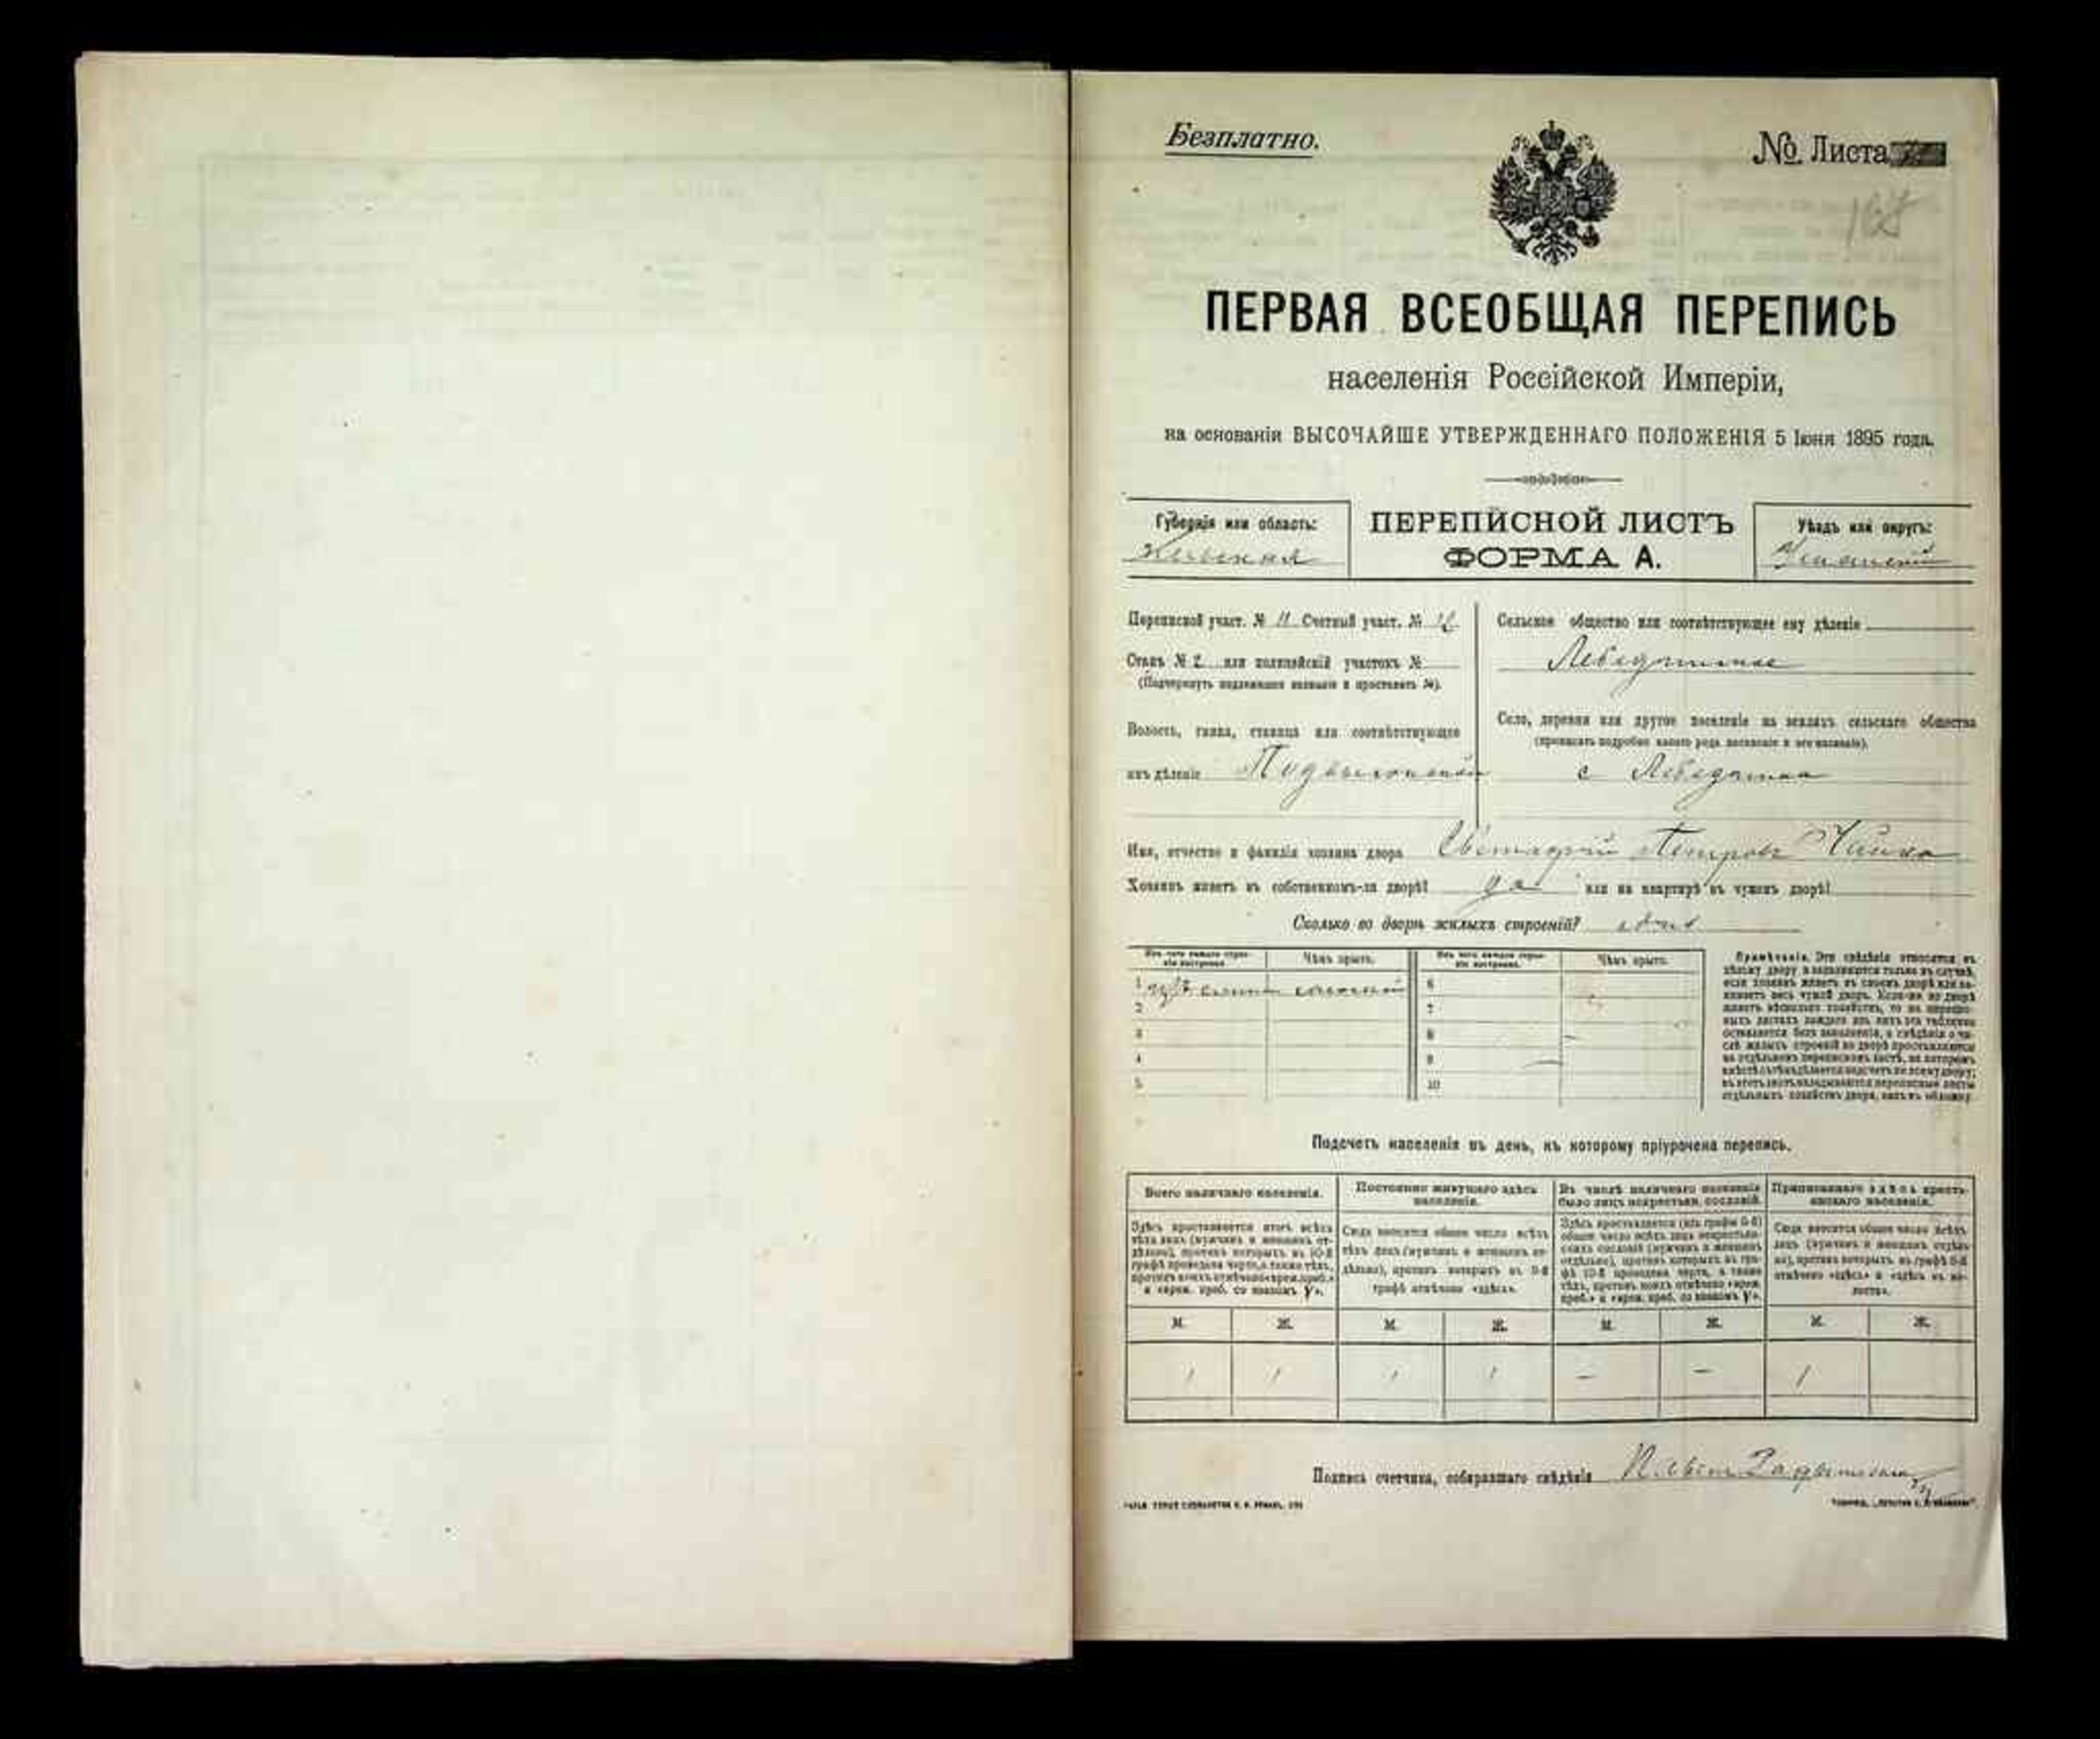 Безплатно.
№ Листа
ПЕРВАЯ ВСЕОБЩАЯ ПЕРЕПИСЬ
населенія Россійской Имперіи,
на основаніи ВЫСОЧАЙШЕ УТВЕРЖДЕННАГО ПОЛОЖЕНІЯ 5 Іюня 1895 года.
Губернія или область:
Кіевская
ПЕРЕПИСНОЙ ЛИСТЪ
ФОРМА А.
Уѣздъ или округъ:
Уманскій
Переписной участ. № 11 Счетный участ. №
Станъ № 2 или полицейскій участокъ №
(Подчеркнуть надлежащее названіе и проставить №).
Волость, гмина, станица или соотвѣтствующее
имъ дѣленіе Подвысоцкая
Сельское общество или соотвѣтствующее ему дѣленіе
Село, деревня или другое поселеніе на земляхъ сельскаго общества
(прописать подробно какого рода поселеніе и его названіе).
с
Имя, отчество и фамилія хозяина двора Петровъ
Хозяинъ живетъ въ собственномъ-ли дворѣ? да или на квартирѣ въ чужомъ дворѣ?
Сколько во дворѣ жилыхъ строеній? одно
Изъ чего каждое строе-
ніе построено.
Чѣмъ крыто.
Изъ чего каждое строе-
ніе построено.
Чѣмъ крыто.
1
2
3
4
5
6
7
8
9
10
Примѣчаніе. Эти свѣдѣнія относятся къ
цѣлому двору и заполняются только въ случаѣ,
если хозяинъ живетъ въ своемъ дворѣ или за-
нимаетъ весь чужой дворъ. Если-же во дворѣ
живетъ нѣсколько хозяйствъ, то на перепис-
ныхъ листахъ каждаго изъ нихъ эта табличка
оставляется безъ заполненія, а свѣдѣнія о чи-
слѣ жилыхъ строеній во дворѣ проставляются
на отдѣльномъ переписномъ листѣ, на которомъ
вмѣстѣ съ тѣмъ дѣлается подсчетъ по всему двору;
въ этотъ листъ вкладываются переписные листы
отдѣльныхъ хозяйствъ двора, какъ въ обложку.
Подсчетъ населенія въ день, къ которому пріурочена перепись.
Всего наличнаго населенія.
Постоянно живущаго здѣсь
населенія.
Въ числѣ наличнаго населенія
было лицъ некрестьян. сословій.
Приписаннаго здѣсь кресть-
янскаго населенія.
Здѣсь проставляется итогъ всѣхъ
тѣхъ лицъ (мужчинъ и женщинъ от-
дѣльно), противъ которыхъ въ 10-й
графѣ проведена черта, а также тѣхъ,
противъ коихъ отмѣчено «врем. преб.»
и «врем. преб. со знакомъ V».
Сюда вносится общее число всѣхъ
тѣхъ лицъ (мужчинъ и женщинъ от-
дѣльно), противъ которыхъ въ 9-й
графѣ отмѣчено «здѣсь».
Здѣсь проставляется (изъ графы 9-й)
общее число всѣхъ лицъ некрестьян-
скихъ сословій (мужчинъ и женщинъ
отдѣльно), противъ которыхъ въ гра-
фѣ 10-й проведена черта, а также
тѣхъ, противъ коихъ отмѣчено «врем.
преб.» и «врем. преб. со знакомъ V».
Сюда вносится общее число всѣхъ
лицъ (мужчинъ и женщинъ отдѣль-
но), противъ которыхъ въ графѣ 8-й
отмѣчено «здѣсь» и «здѣсь въ во-
лости».
М. Ж. М. Ж. М. Ж. М. Ж.
1 1 1 1 — — 1
Подпись счетчика, собиравшаго свѣдѣнія